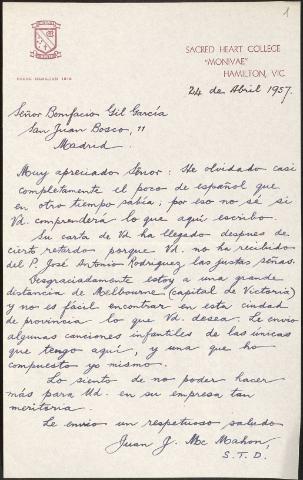 1
SACRED HEART COLLEGE
"MONIVAE"
HAMILTON, VIC.
24 de Abril 1957.
Señor Bonifacio Gil García
San Juan Bosco, 11
Madrid.
Muy apreciado Senor: He olvidado casi
completamente el poco de español que
en otro tiempo sabía; por eso no sé si
Vd. comprenderá lo que aquí escribo.
Su carta de Vd ha llegado despues de
cierto retardo porque Vd. no ha recibido
del P. José Antonio Rodriguez las justas señas.
Desgraciadamente estoy a una grande
distancia de Melbourne (capital de Victoria)
y no es fácil encontrar en esta ciudad
de provincia lo que Vd. desea. Le envio
algunas canciones infantiles de las únicas
que tengo aquí, y una que ho
compuesto yo mismo.
Lo siento de no poder hacer
más para Ud. en su empresa tan
meritoria.
Le envío un respetuoso saludo
Juan J. Mc Mahon,
S. T. D.